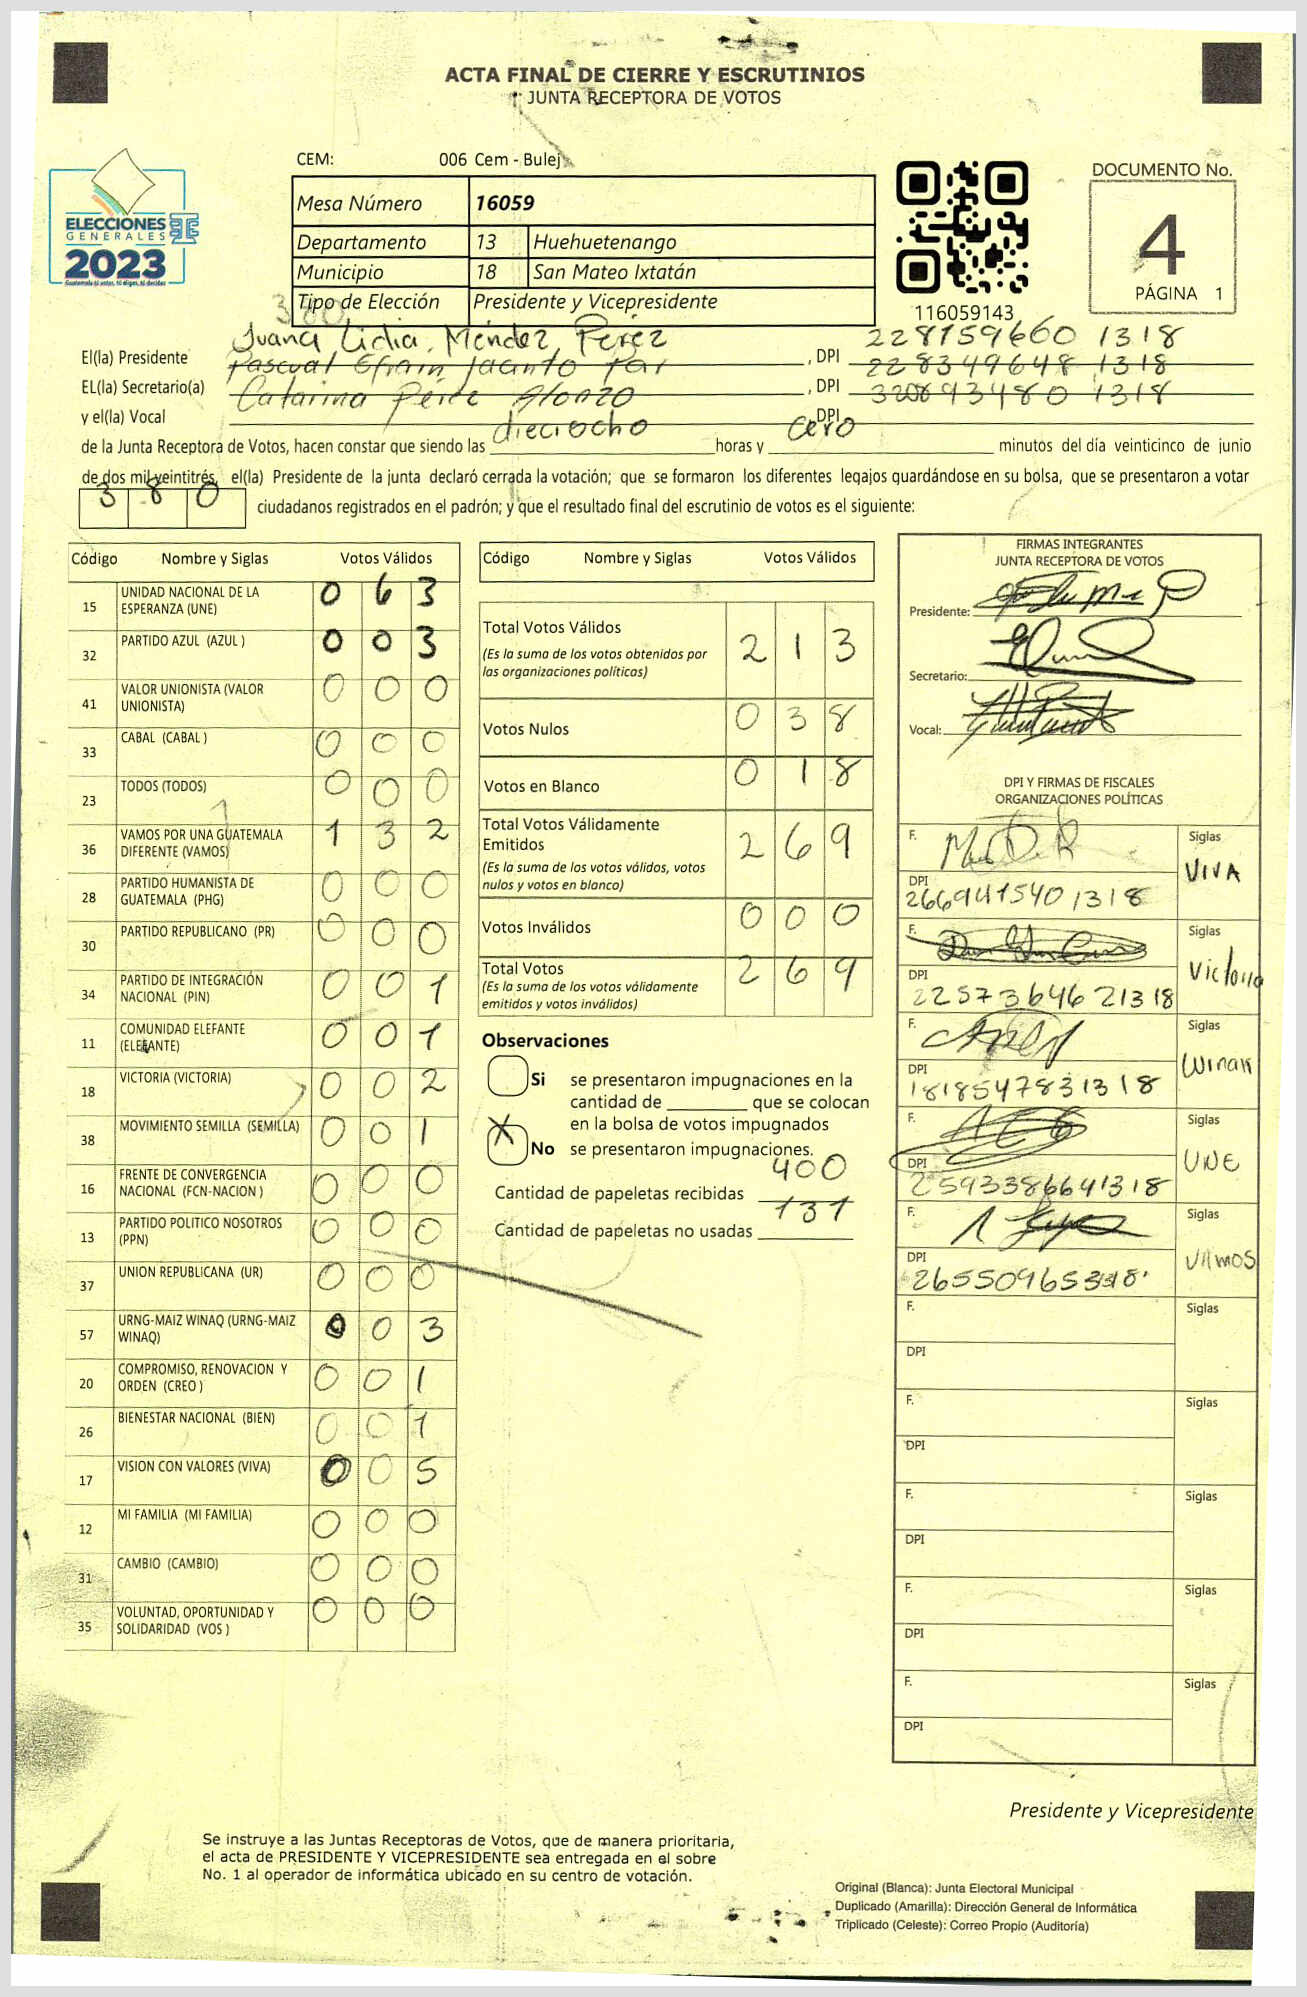 ACTA FINAL DE CIERRE Y ESCRUTINIOS
JUNTA RECEPTORA DE VOTOS
CEM: 006 Cem - Bulej
ELECCIONES
GENERALES
2023
Mesa Número 16059
Departamento 13 Huehuetenango
Municipio 18 San Mateo Ixtatán
Tipo de Elección Presidente y Vicepresidente
116059143
DOCUMENTO No.
4
PÁGINA 1
El(la) Presidente Juana Lidia Méndez Pérez , DPI 228159660 1318
EL(la) Secretario(a) Pascual Efraín Jacinto , DPI 228349648 1318
y el(la) Vocal Catarina Pérez Alonzo DPI 320893480 1318
de la Junta Receptora de Votos, hacen constar que siendo las dieciocho horas y cero minutos del día veinticinco de junio
de dos mil veintitrés, el(la) Presidente de la junta declaró cerrada la votación; que se formaron los diferentes legajos guardándose en su bolsa, que se presentaron a votar
380 ciudadanos registrados en el padrón; y que el resultado final del escrutinio de votos es el siguiente:
Código Nombre y Siglas Votos Válidos
15 UNIDAD NACIONAL DE LA ESPERANZA (UNE) 0 6 3
32 PARTIDO AZUL (AZUL ) 0 0 3
41 VALOR UNIONISTA (VALOR UNIONISTA) 0 0 0
33 CABAL (CABAL ) 0 0 0
23 TODOS (TODOS) 0 0 0
36 VAMOS POR UNA GUATEMALA DIFERENTE (VAMOS) 1 3 2
28 PARTIDO HUMANISTA DE GUATEMALA (PHG) 0 0 0
30 PARTIDO REPUBLICANO (PR) 0 0 0
34 PARTIDO DE INTEGRACIÓN NACIONAL (PIN) 0 0 1
11 COMUNIDAD ELEFANTE (ELEFANTE) 0 0 1
18 VICTORIA (VICTORIA) 0 0 2
38 MOVIMIENTO SEMILLA (SEMILLA) 0 0 1
16 FRENTE DE CONVERGENCIA NACIONAL (FCN-NACION ) 0 0 0
13 PARTIDO POLITICO NOSOTROS (PPN) 0 0 0
37 UNION REPUBLICANA (UR) 0 0 0
57 URNG-MAIZ WINAQ (URNG-MAIZ WINAQ) 0 0 3
20 COMPROMISO, RENOVACION Y ORDEN (CREO ) 0 0 1
26 BIENESTAR NACIONAL (BIEN) 0 0 1
17 VISION CON VALORES (VIVA) 0 0 5
12 MI FAMILIA (MI FAMILIA) 0 0 0
31 CAMBIO (CAMBIO) 0 0 0
35 VOLUNTAD, OPORTUNIDAD Y SOLIDARIDAD (VOS ) 0 0 0
Código Nombre y Siglas Votos Válidos
Total Votos Válidos 2 1 3
(Es la suma de los votos obtenidos por
las organizaciones políticas)
Votos Nulos 0 3 8
Votos en Blanco 0 1 8
Total Votos Válidamente
Emitidos 2 6 9
(Es la suma de los votos válidos, votos
nulos y votos en blanco)
Votos Inválidos 0 0 0
Total Votos 2 6 9
(Es la suma de los votos válidamente
emitidos y votos inválidos)
Observaciones
Si se presentaron impugnaciones en la
cantidad de ________ que se colocan
en la bolsa de votos impugnados
X No se presentaron impugnaciones.
Cantidad de papeletas recibidas 400
Cantidad de papeletas no usadas 131
FIRMAS INTEGRANTES
JUNTA RECEPTORA DE VOTOS
Presidente:
Secretario:
Vocal:
DPI Y FIRMAS DE FISCALES
ORGANIZACIONES POLÍTICAS
F. Siglas VIVA
DPI 2669415401318
F. Siglas Victoria
DPI 2257364621318
F. Siglas Winak
DPI 1818547831318
F. Siglas UNE
DPI 2593386641318
F. Siglas VAMOS
DPI
F. Siglas
DPI
F. Siglas
DPI
F. Siglas
DPI
F. Siglas
DPI
F. Siglas
DPI
Presidente y Vicepresidente
Se instruye a las Juntas Receptoras de Votos, que de manera prioritaria,
el acta de PRESIDENTE Y VICEPRESIDENTE sea entregada en el sobre
No. 1 al operador de informática ubicado en su centro de votación.
Original (Blanca): Junta Electoral Municipal
Duplicado (Amarilla): Dirección General de Informática
Triplicado (Celeste): Correo Propio (Auditoría)